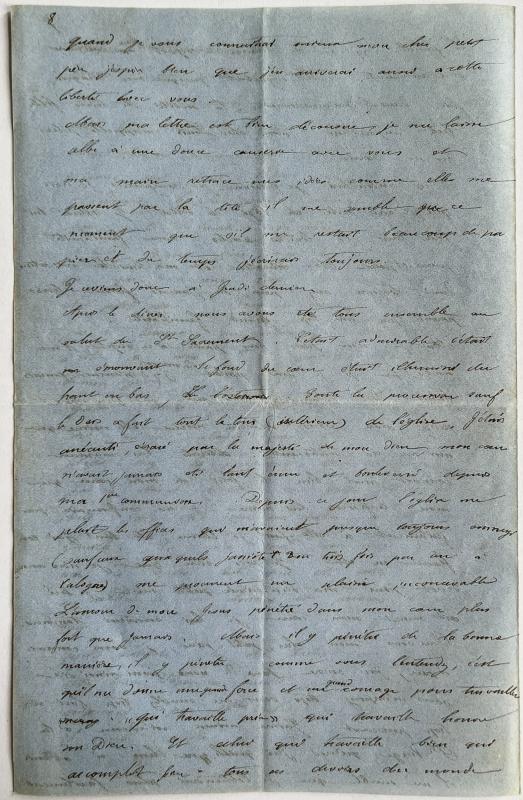 8
quand je vous connaitrai mieux mon cher petit
père j'espère bien que j'en arriverai aussi à cette
liberté avec vous.
Mais ma lettre est bien décousue, je me laisse
aller à une douce causerie avec vous et
ma main retrace mes idées comme elles me
passent par la tête il me semble que ce
moment que s'il me restait beaucoup de pa
pier et du temps j'écrirais toujours.
Je reviens donc à Jeudi dernier.
Après le diner nous avons été tous ensemble au
salut du St Sacrement. C'était admirable c'était
émouvant le fond du cœur était illuminé du
haut en bas, toute la procession sauf
le Dais a fait tout le tour (extérieur) de l'église, J'étais
anéanti, écrasé par la majesté de mon Dieu, mon cœur
n'avait jamais été tant ému et bouleversé depuis
ma 1ère communion. Depuis ce jour l'église me
plait les offices qui m'avaient presque toujours ennuyé
(sauf ceux auxquels j'assiste 2 ou trois fois par an à
) me procurent un plaisir inconcevable
L'amour de mon Jesus pénètre dans mon cœur plus
fort que jamais. Mais il y pénètre de la bonne
manière, il y pénètre comme vous l'entendez, c'est
qu'il me donne une force et un grand courage pour travailler
"Qui travaille prie" qui travaille honore
son Dieu. Et celui qui travaille bien qui
accomplit tous ses devoirs du monde